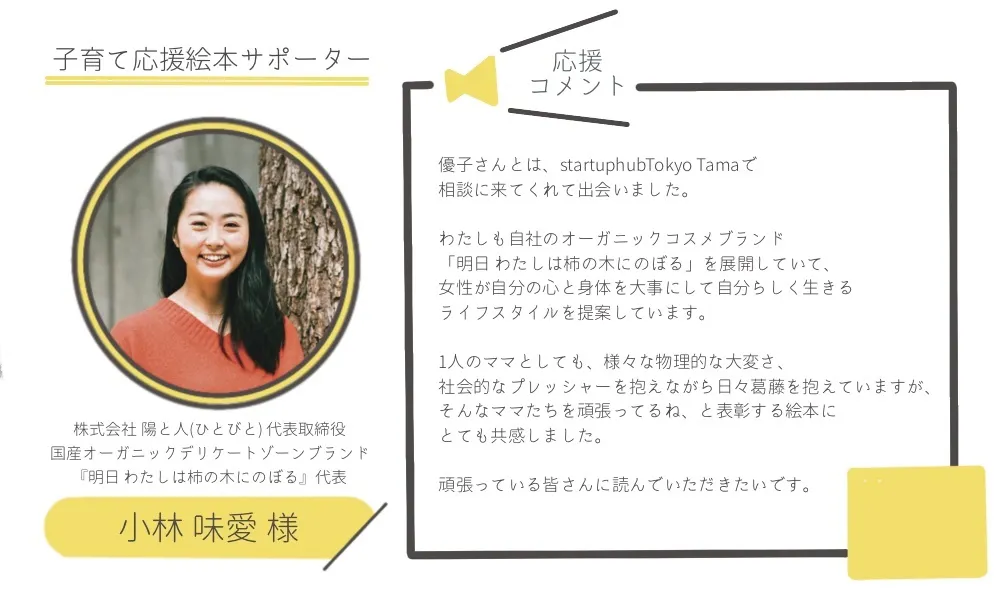 子育て応援絵本サポーター
応援
コメント
優子さんとは、startuphubTokyo Tamaで
相談に来てくれて出会いました。
わたしも自社のオーガニックコスメブランド
「明日 わたしは柿の木にのぼる」を展開していて、
女性が自分の心と身体を大事にして自分らしく生きる
ライフスタイルを提案しています。
1人のママとしても、様々な物理的な大変さ、
社会的なプレッシャーを抱えながら日々葛藤を抱えていますが、
そんなママたちを頑張ってるね、と表彰する絵本に
とても共感しました。
頑張っている皆さんに読んでいただきたいです。
株式会社 陽と人(ひとびと) 代表取締役
国産オーガニックデリケートゾーンブランド
『明日 わたしは柿の木にのぼる』代表
小林 味愛 様